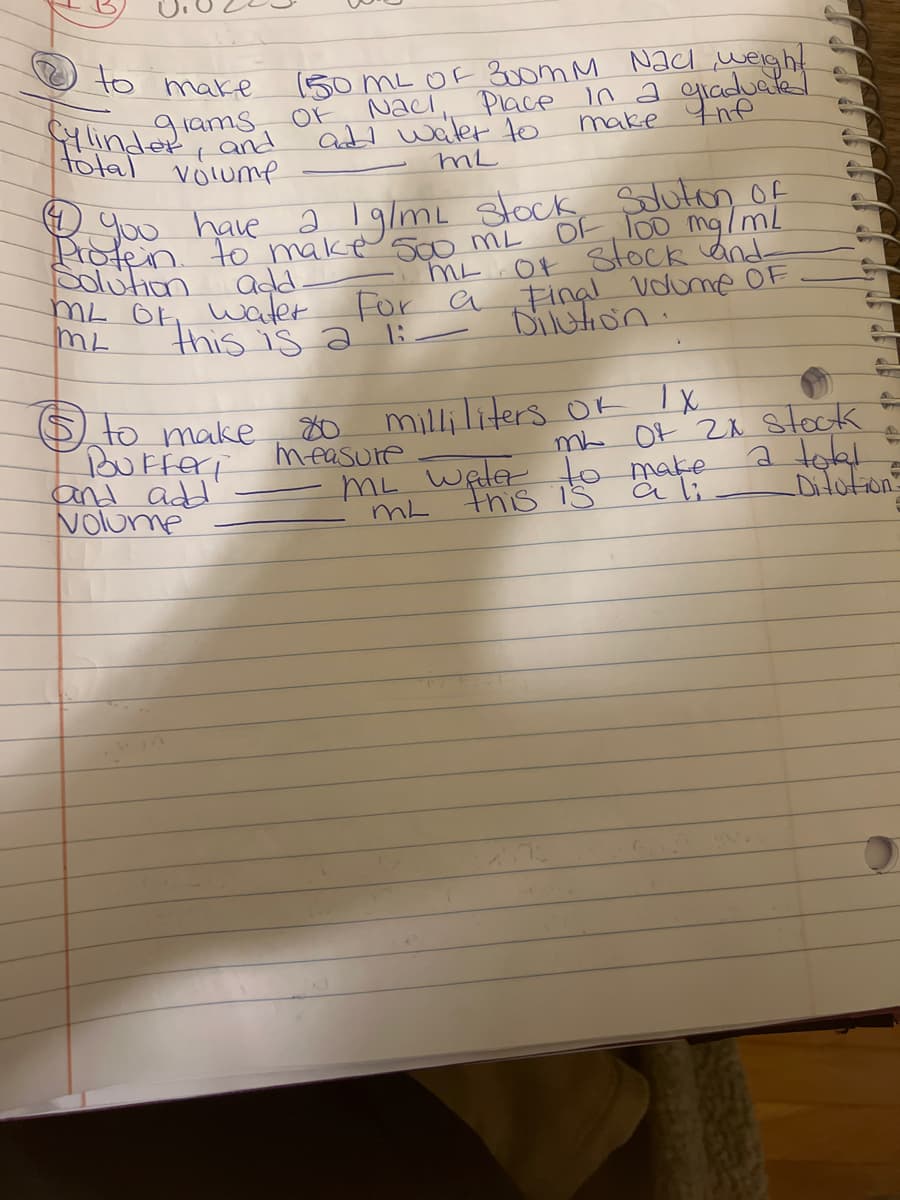 ② to make 150 mL OF 300mM Nacl, weight
____ grams OF Nacl, Place in a graduated
Cylinder, and add water to make the
total volume ____ mL
④ you have a 1g/mL stock Solution of
Protein. to make 500 mL OF 100 mg/mL
Solution add ____ mL OF Stock and ____
mL OF water For a Final volume OF ____
mL this is a 1:__ Dilution.
⑤ to make 80 milliliters OF 1x
Buffer, measure ____ mL OF 2x Stock
and add ____ mL water to make a total
volume ____ mL this is a 1:____ Dilution